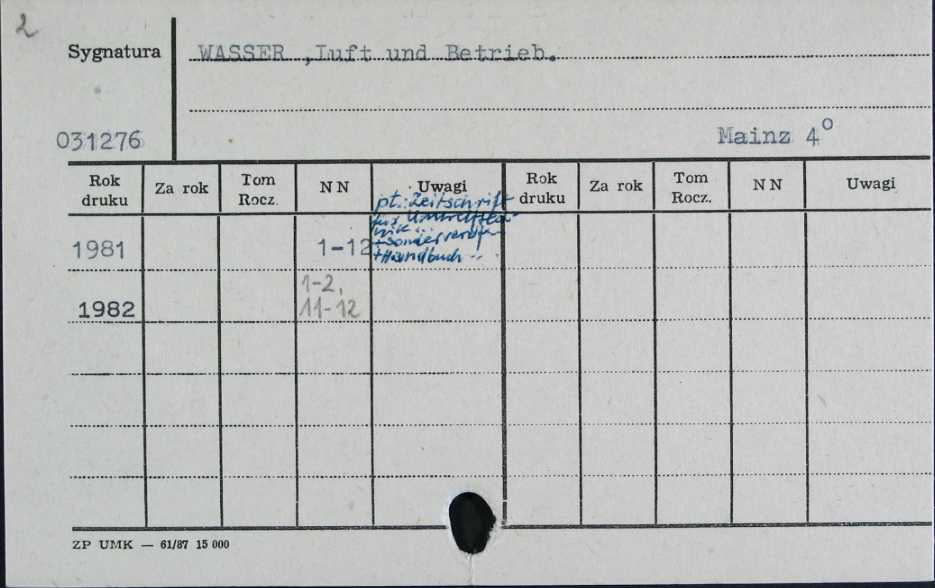 2
Sygnatura
WASSER ,Luft und Betrieb.
031276
Mainz 4°
Rok druku Za rok Tom Rocz. N N Uwagi Rok druku Za rok Tom Rocz. N N Uwagi
pt.: Zeitschrift
für Umwelttech-
nik...
1981 1-12 +Sonder
+Handbuch..
1-2,
1982 11-12
ZP UMK — 61/87 15 000